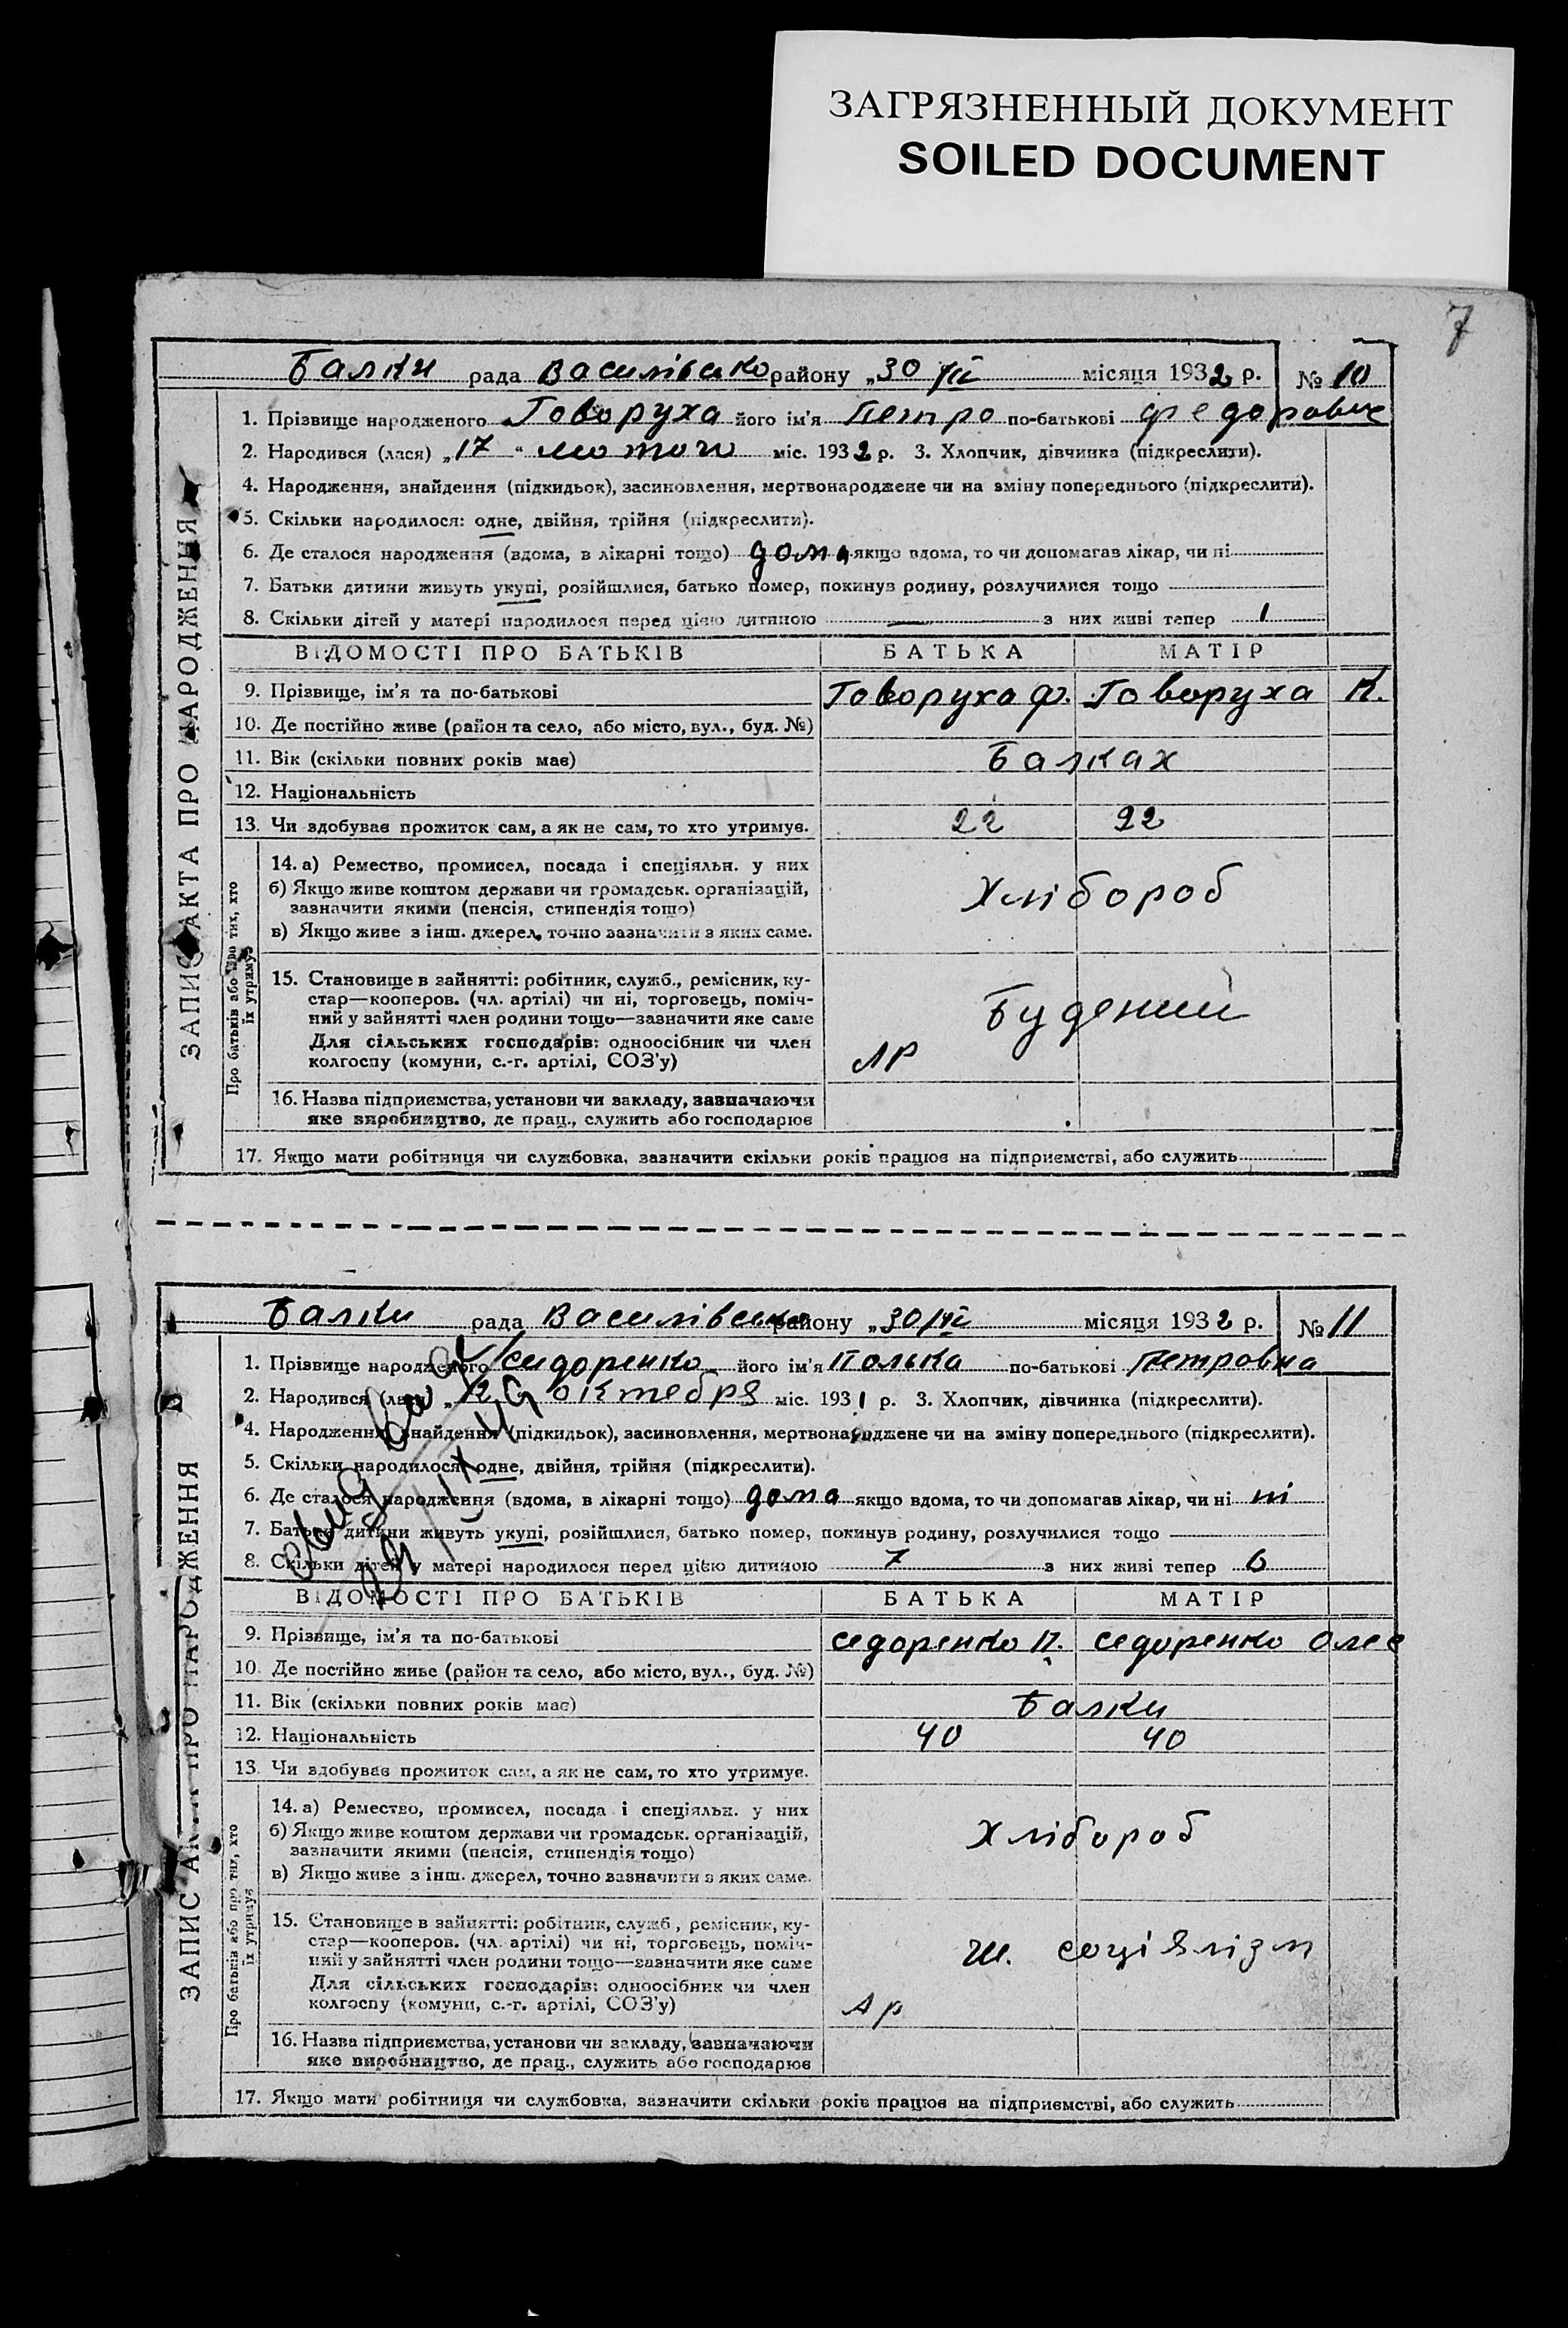 ЗАГРЯЗНЕННЫЙ ДОКУМЕНТ
SOILED DOCUMENT
7
Балки рада Василівсько району „30 місяця 1932 р. № 10
1. Прізвище народженого Говоруха його ім'я Петро по-батькові Федоровис
2. Народився (лася) „17 “ лютого міс. 1932 р. 3. Хлопчик, дівчинка (підкреслити).
4. Народження, знайдення (підкидьок), засиновлення, мертвонароджене чи на зміну попереднього (підкреслити).
5. Скільки народилося: одне, двійня, трійня (підкреслити).
6. Де сталося народження (вдома, в лікарні тощо) дома якщо вдома, то чи допомагав лікар, чи ні
7. Батьки дитини живуть укупі, розійшлися, батько помер, покинув родину, розлучилися тощо
8. Скільки дітей у матері народилося перед цією дитиною — з них живі тепер 1
ВІДОМОСТІ ПРО БАТЬКІВ БАТЬКА МАТІР
9. Прізвище, ім'я та по-батькові Говоруха Ф. Говоруха П.
10. Де постійно живе (район та село, або місто, вул., буд. №)
11. Вік (скільки повних років має) Балках
12. Національність
13. Чи здобуває прожиток сам, а як не сам, то хто утримує. 22 22
14. а) Ремество, промисел, посада і спеціяльн. у них
б) Якщо живе коштом держави чи громадськ. організацій,
зазначити якими (пенсія, стипендія тощо)
Хлібороб
в) Якщо живе з інш. джерел, точно зазначити з яких саме.
15. Становище в зайнятті: робітник, служб., ремісник, ку-
стар—кооперов. (чл. артілі) чи ні, торговець, поміч-
ний у зайнятті член родини тощо—зазначити яке саме
Буденний
Для сільських господарів: одноосібник чи член
колгоспу (комуни, с.-г. артілі, СОЗ'у) ЛР
16. Назва підприємства, установи чи закладу, зазначаючи
яке виробництво, де прац., служить або господарює
17. Якщо мати робітниця чи службовка, зазначити скільки років працює на підприємстві, або служить
ЗАПИС АКТА ПРО НАРОДЖЕННЯ
Про батьків або про тих, хто
їх утримує
Балки рада Василівсько району „30 місяця 1932 р. № 11
1. Прізвище народженого Сидоренко його ім'я Полька по-батькові Петровна
2. Народився (лася) „12 октебря міс. 1931 р. 3. Хлопчик, дівчинка (підкреслити).
4. Народження, знайдення (підкидьок), засиновлення, мертвонароджене чи на зміну попереднього (підкреслити).
5. Скільки народилося: одне, двійня, трійня (підкреслити).
6. Де сталося народження (вдома, в лікарні тощо) дома якщо вдома, то чи допомагав лікар, чи ні ні
7. Батьки дитини живуть укупі, розійшлися, батько помер, покинув родину, розлучилися тощо
8. Скільки дітей у матері народилося перед цією дитиною 7 з них живі тепер 6
ВІДОМОСТІ ПРО БАТЬКІВ БАТЬКА МАТІР
9. Прізвище, ім'я та по-батькові Седоренко П. Седоренко Олее
10. Де постійно живе (район та село, або місто, вул., буд. №)
11. Вік (скільки повних років має) Балки
12. Національність 40 40
13. Чи здобуває прожиток сам, а як не сам, то хто утримує.
14. а) Ремество, промисел, посада і спеціяльн. у них
б) Якщо живе коштом держави чи громадськ. організацій,
зазначити якими (пенсія, стипендія тощо)
Хлібороб
в) Якщо живе з інш. джерел, точно зазначити з яких саме.
15. Становище в зайнятті: робітник, служб., ремісник, ку-
стар—кооперов. (чл. артілі) чи ні, торговець, поміч-
ний у зайнятті член родини тощо—зазначити яке саме
Ш. соціялізм
Для сільських господарів: одноосібник чи член
колгоспу (комуни, с.-г. артілі, СОЗ'у) Ар
16. Назва підприємства, установи чи закладу, зазначаючи
яке виробництво, де прац., служить або господарює
17. Якщо мати робітниця чи службовка, зазначити скільки років працює на підприємстві, або служить
ЗАПИС АКТА ПРО НАРОДЖЕННЯ
Про батьків або про тих, хто
їх утримує